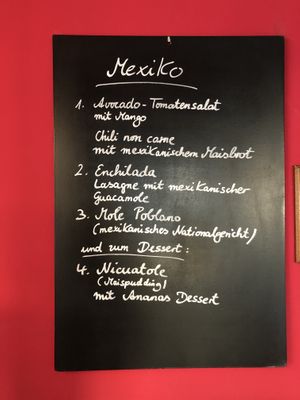 Mexiko
1. Avocado-Tomatensalat
mit Mango
Chili non carne
mit mexikanischem Maisbrot
2. Enchilada
Lasagne mit mexikanischer
Guacamole
3. Mole Poblano
(mexikanisches Nationalgericht)
und zum Dessert:
4. Nicuatole
(Maispudding)
mit Ananas Dessert